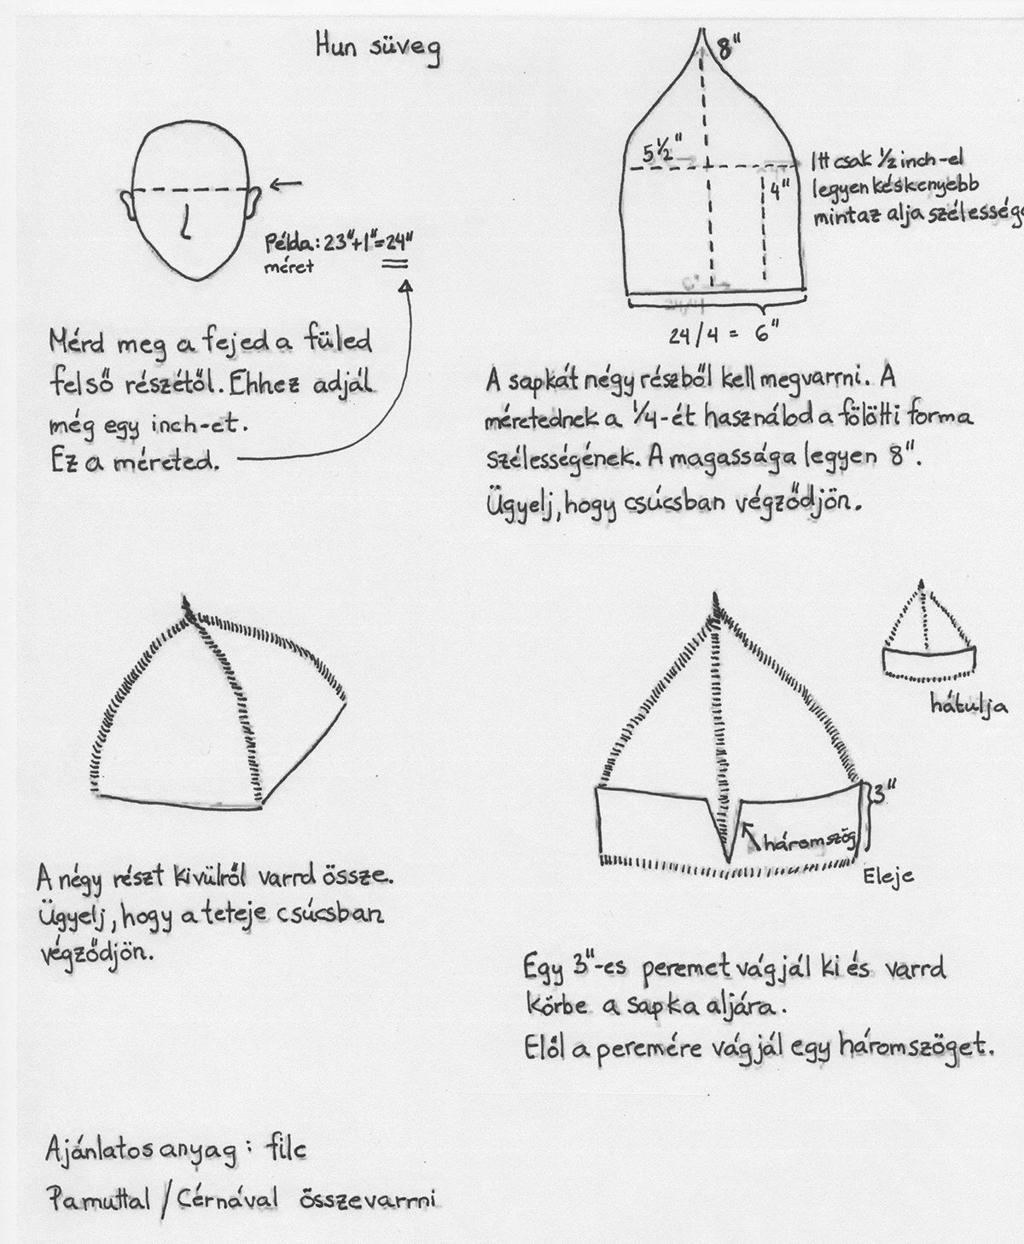 Hun süveg
Példa: 23"+1"=24"
méret
Mérd meg a fejed a füled
felső részétől. Ehhez adjál
még egy inch-et.
Ez a méreted.
8"
5½"
4"
Itt csak ½ inch-el
legyen késkenyebb
mint az alja szélesség
24/4 = 6"
A sapkát négy részből kell megvarrni. A
méretednek a ¼-ét használod a fölötti forma
szélességének. A magassága legyen 8".
Ügyelj, hogy csúcsban végződjön.
A négy részt kivülről varrd össze.
Ügyelj, hogy a teteje csúcsban
végződjön.
hátulja
3"
háromszög
Eleje
Egy 3"-es peremet vágjál ki és varrd
körbe a sapka aljára.
Elől a peremére vágjál egy háromszöget.
Ajánlatos anyag: filc
Pamuttal / Cérnával összevarrni